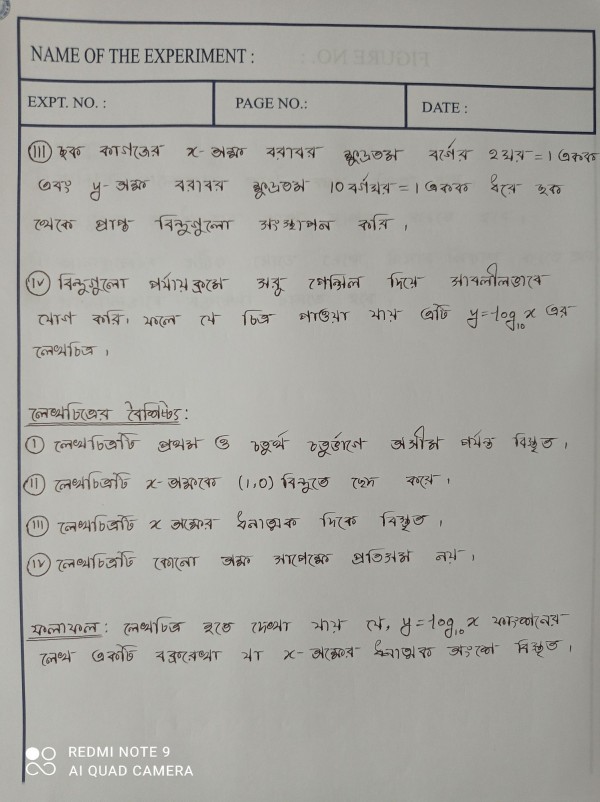 NAME OF THE EXPERIMENT :
EXPT. NO. :
PAGE NO.:
DATE :
(III) ছক কাগজের x-অক্ষ বরাবর ক্ষুদ্রতম বর্গের ২ঘর = 1 একক
এবং y-অক্ষ বরাবর ক্ষুদ্রতম 10 বর্গঘর = 1 একক ধরে ছক
থেকে প্রাপ্ত বিন্দুগুলো সংস্থাপন করি।
(IV) বিন্দুগুলো পর্যায়ক্রমে সরু পেন্সিল দিয়ে সাবলীলভাবে
যোগ করি। ফলে যে চিত্র পাওয়া যায় এটি y=log₁₀x এর
লেখচিত্র।
লেখচিত্রের বৈশিষ্ট্য:
(I) লেখচিত্রটি প্রথম ও চতুর্থ চতুর্ভাগে অসীম পর্যন্ত বিস্তৃত।
(II) লেখচিত্রটি x-অক্ষকে (1,0) বিন্দুতে ছেদ করে।
(III) লেখচিত্রটি x অক্ষের ধনাত্মক দিকে বিস্তৃত।
(IV) লেখচিত্রটি কোনো অক্ষ সাপেক্ষে প্রতিসম নয়।
ফলাফল: লেখচিত্র হতে দেখা যায় যে, y=log₁₀x ফাংশনের
লেখ একটি বক্ররেখা যা x-অক্ষের ধনাত্মক অংশে বিস্তৃত।
REDMI NOTE 9
AI QUAD CAMERA